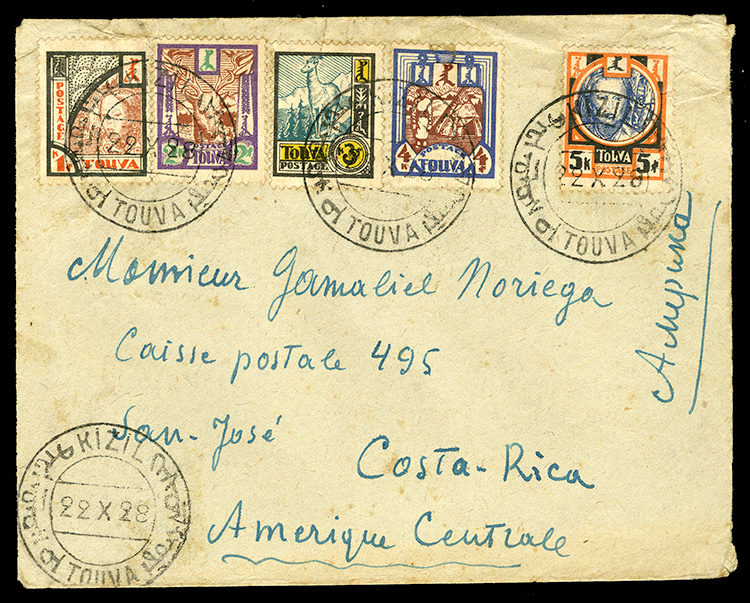 POSTAGE
1 K TOUVA
POSTAGE
2 TOUVA 2
TOUVA
POSTAGE 3
POSTAGE
4 K TOUVA 4
5 K TOUVA 5
POSTAGE
KIZIL
22 X 28
TOUVA
TOUVA
KIZIL
22 X 28
TOUVA
Америка
Monsieur Gamaliel Noriega
Caisse postale 495
San-José
Costa-Rica
Amerique Centrale
KIZIL
22 X 28
TOUVA